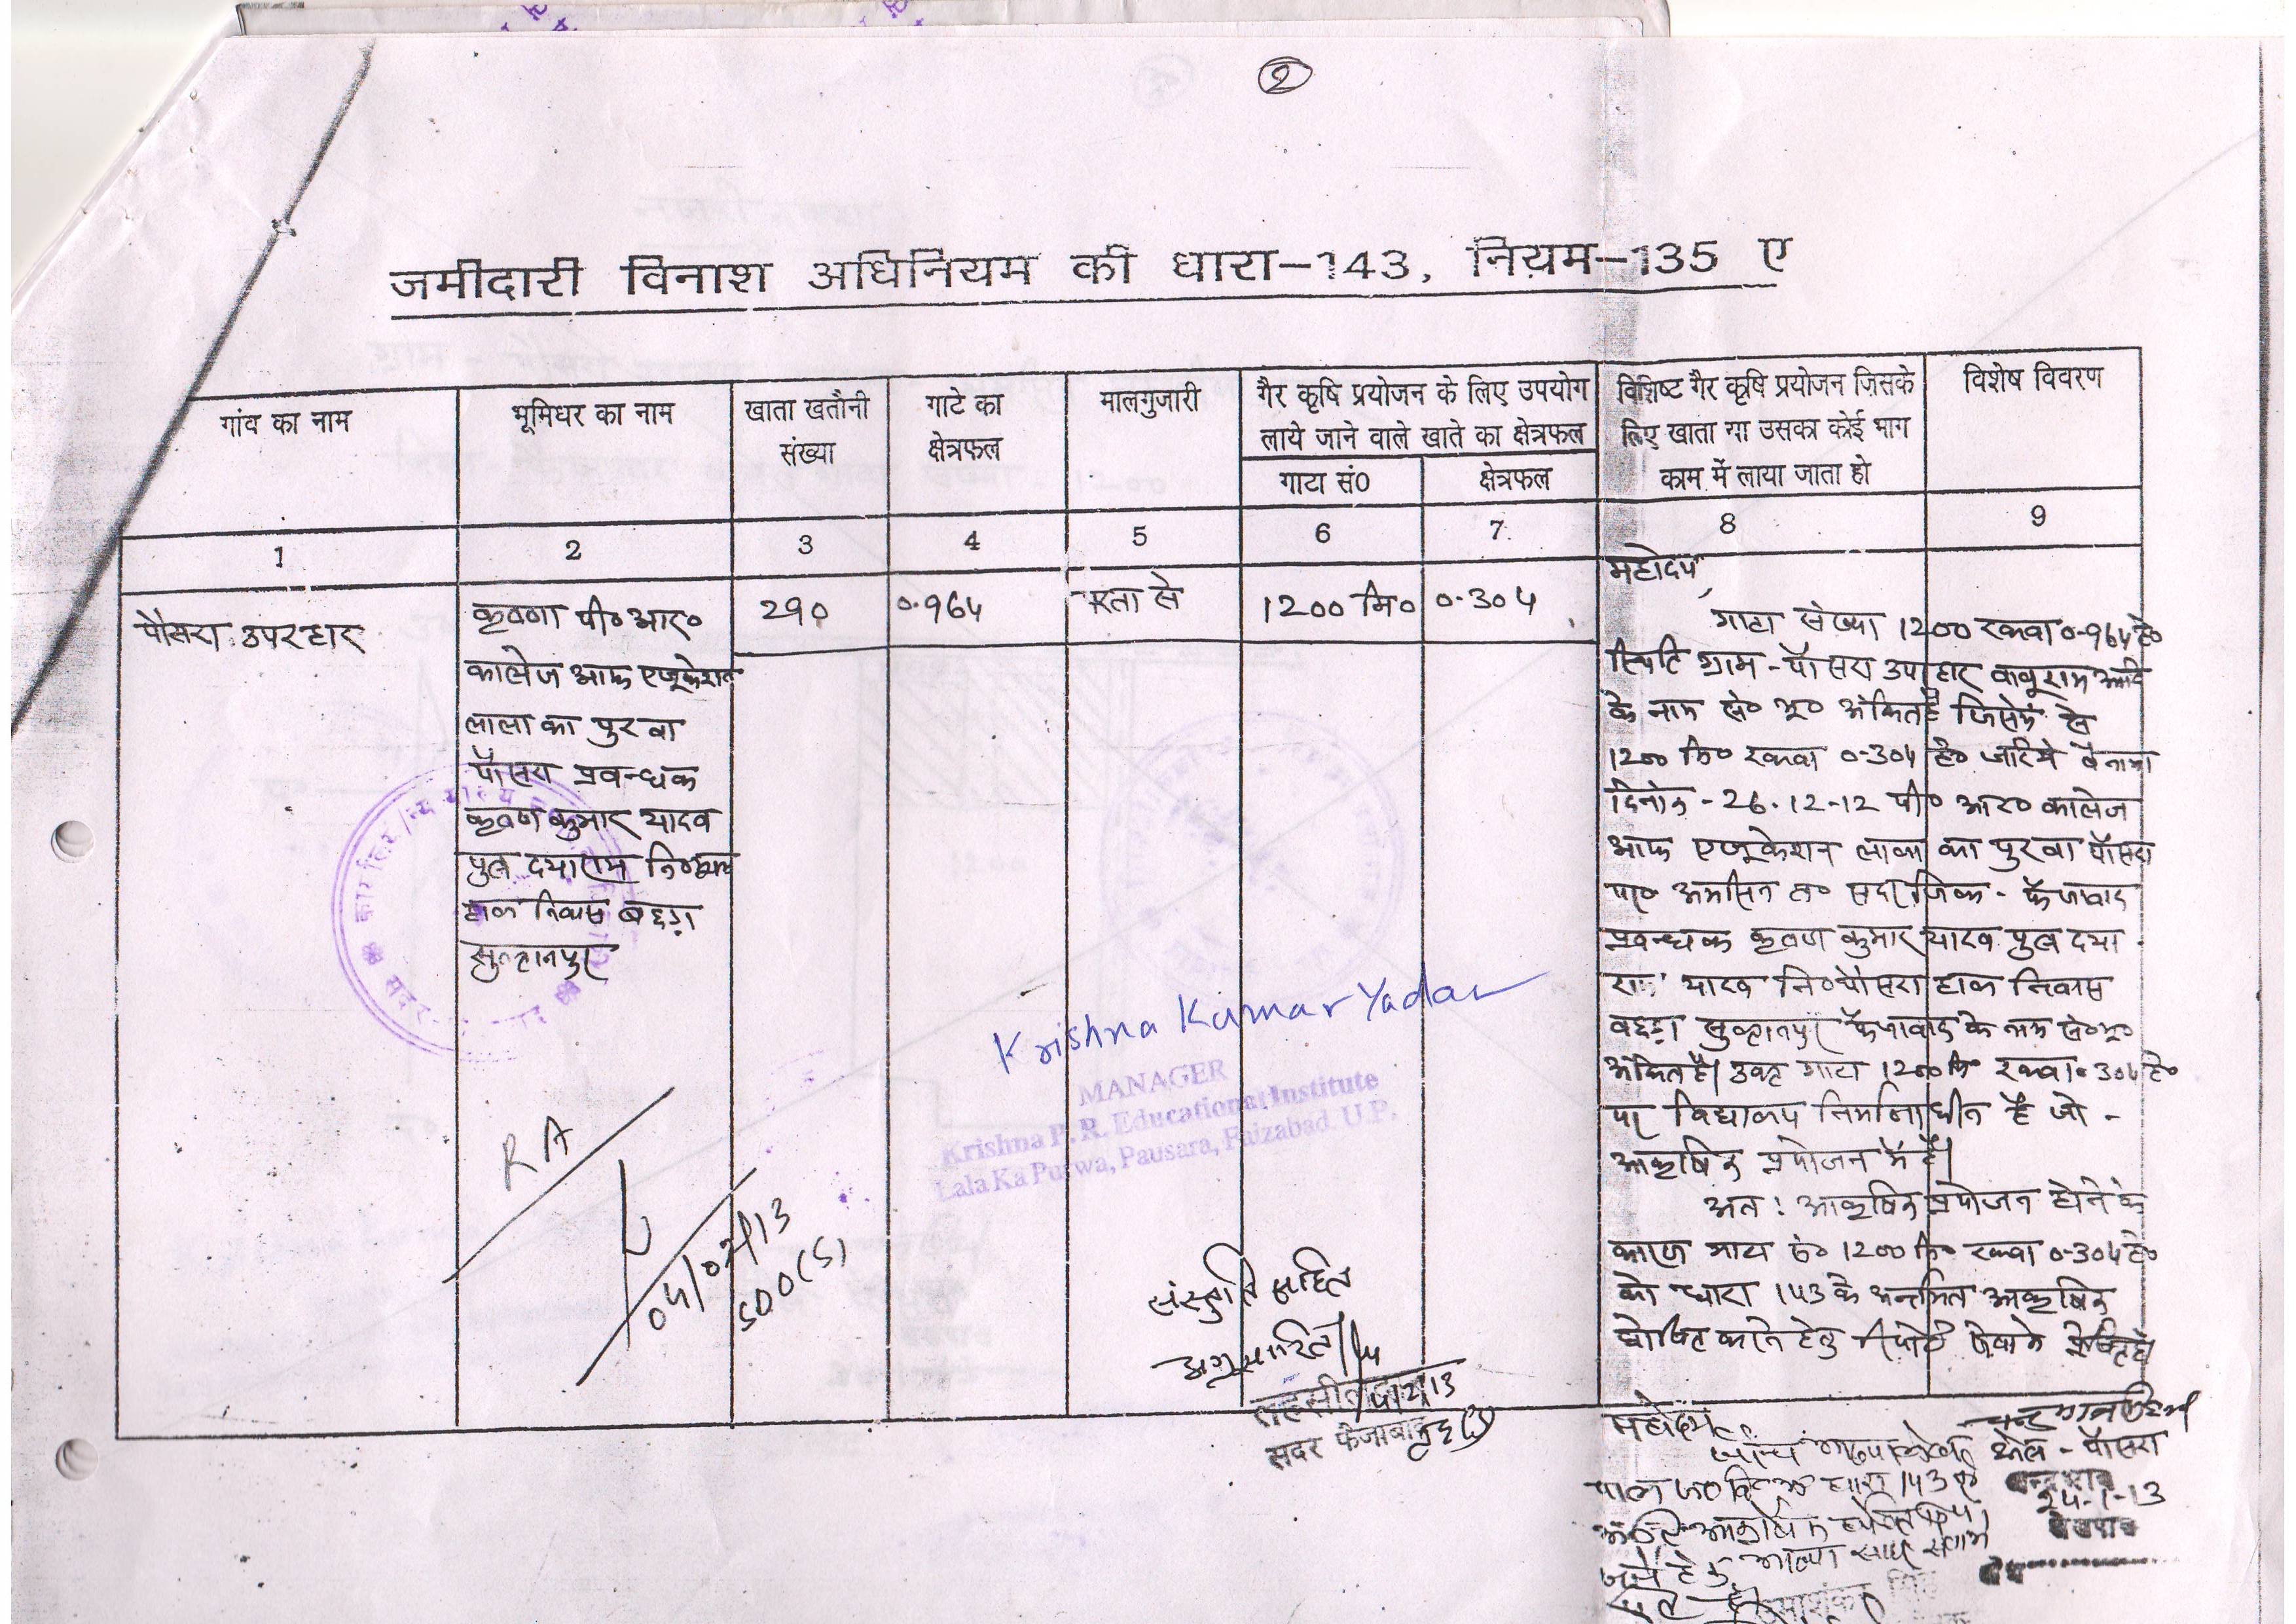 2
जमींदारी विनाश अधिनियम की धारा-143, नियम-135 ए
गांव का नाम
भूमिधर का नाम
खाता खतौनी
संख्या
गाटे का
क्षेत्रफल
मालगुजारी
गैर कृषि प्रयोजन के लिए उपयोग
लाये जाने वाले खाते का क्षेत्रफल
गाटा सं0
क्षेत्रफल
विशिष्ट गैर कृषि प्रयोजन जिसके
लिए खाता या उसका कोई भाग
काम में लाया जाता हो
विशेष विवरण
1 2 3 4 5 6 7 8 9
पौसरा उपरहार
कृष्णा पी० आर०
कालेज आफ एजूकेशन
लाला का पुरवा
पौसरा प्रबन्धक
कृष्ण कुमार यादव
पुत्र दयाराम
हाल निवास बहड़ा
सुल्तानपुर
290
0.964
1200 मि०
0.304
महोदय,
गाटा संख्या 1200 रकवा 0.964 हे०
स्थिति ग्राम - पौसरा उपरहार बाबूराम आदि
के नाम सं० भू० अंकित है जिसमें से
1200 मि० रकवा 0.304 हे० जरिये बैनामा
दिनांक - 26.12.12 पी० आर० कालेज
आफ एजूकेशन लाला का पुरवा पौसरा
पर० अमसिन त० सदर जिला - फैजाबाद
प्रबन्धक कृष्ण कुमार यादव पुत्र दया
राम यादव नि० पौसरा हाल निवास
बहड़ा सुल्तानपुर फैजाबाद के नाम सं० भू०
अंकित है। उक्त गाटा 1200 मि० रकवा 0.304 हे०
पर विद्यालय निर्माणाधीन है जो -
अकृषिक प्रयोजन में है।
अतः अकृषिक प्रयोजन होने के
कारण गाटा सं० 1200 मि० रकवा 0.304 हे०
को धारा 143 के अन्तर्गत अकृषिक
घोषित करने हेतु रिपोर्ट सेवा में प्रेषित है।
Krishna Kumar Yadav
MANAGER
Krishna P. R. Educational Institute
Lala Ka Purwa, Pausara, Faizabad. U.P.
RA
04/02/13
SDO(S)
संस्तुति सहित
अग्रसारित
तहसीलदार
सदर फैजाबाद
महोदय,
क्षेत्र - पौसरा
24-1-13
लेखपाल